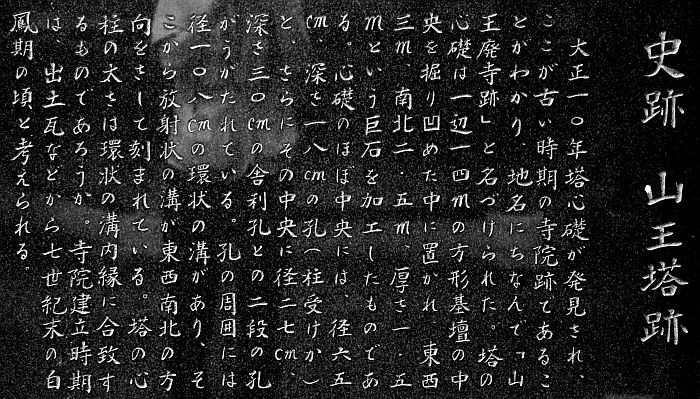 史跡　山王塔跡
大正一〇年塔心礎が発見され、
ここが古い時期の寺院跡であるこ
とがわかり、地名にちなんで「山
王廃寺跡」と名づけられた。塔の
心礎は一辺一四mの方形基壇の中
央を掘り凹めた中に置かれ、東西
三m、南北二・五m、厚さ一・五
mという巨石を加工したものであ
る。心礎のほぼ中央には、径六五
cm、深さ一八cmの孔(柱受けか)
と、さらにその中央に径二七cm、
深さ三〇cmの舎利孔との二段の孔
がうがたれている。孔の周囲には
径一〇八cmの環状の溝があり、そ
こから放射状の溝が東西南北の方
向をさして刻まれている。塔の心
柱の太さは環状の溝内縁に合致す
るものであろうか。寺院建立時期
は、出土瓦などから七世紀末の白
鳳期の頃と考えられる。